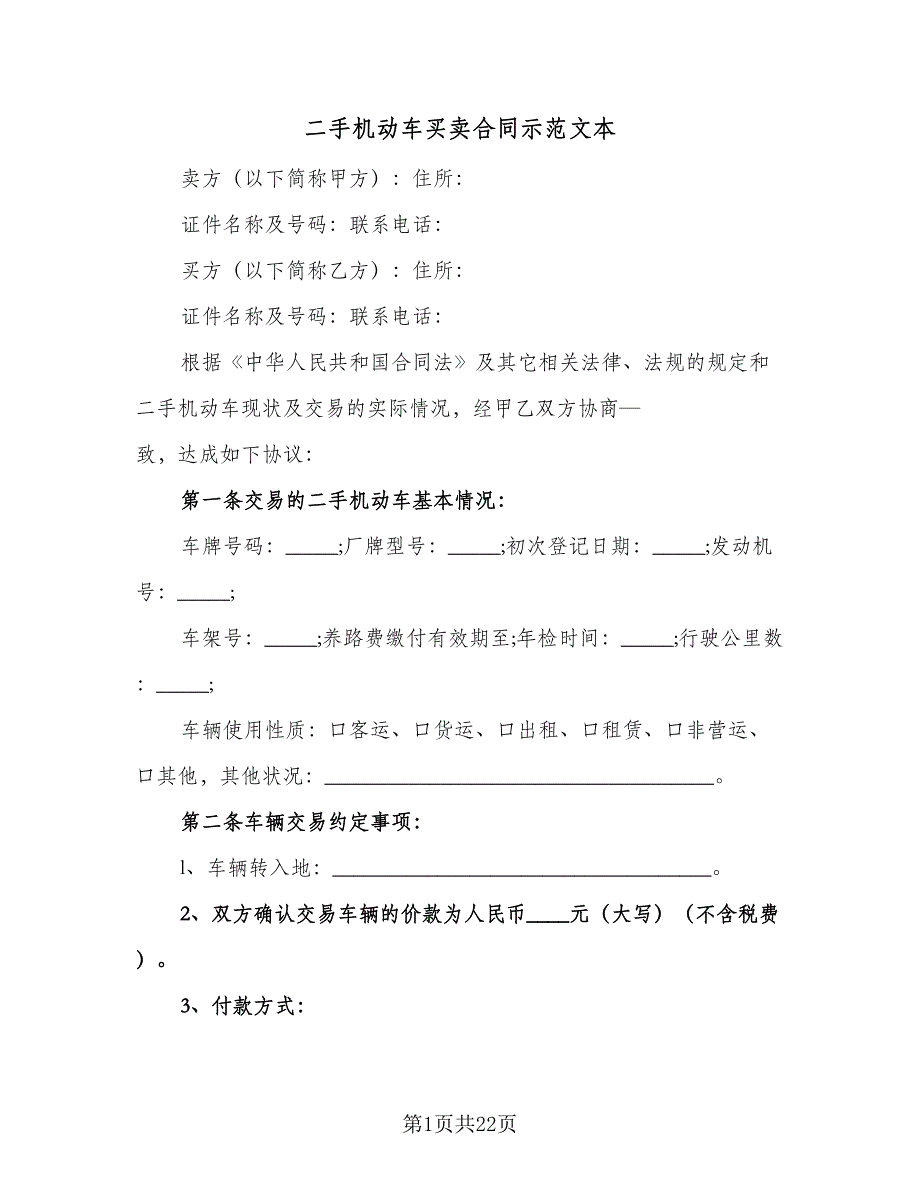 二手机动车买卖合同示范文本
卖方（以下简称甲方）：住所：
证件名称及号码：联系电话：
买方（以下简称乙方）：住所：
证件名称及号码：联系电话：
根据《中华人民共和国合同法》及其它相关法律、法规的规定和
二手机动车现状及交易的实际情况，经甲乙双方协商—
致，达成如下协议：
第一条交易的二手机动车基本情况：
车牌号码：_____;厂牌型号：_____;初次登记日期：_____;发动机
号：_____;
车架号：_____;养路费缴付有效期至;年检时间：_____;行驶公里数
：_____;
车辆使用性质：口客运、口货运、口出租、口租赁、口非营运、
口其他，其他状况：_____________________________________。
第二条车辆交易约定事项：
l、车辆转入地：____________________________________。
2、双方确认交易车辆的价款为人民币____元（大写）（不含税费
）。
3、付款方式：
第1页共22页